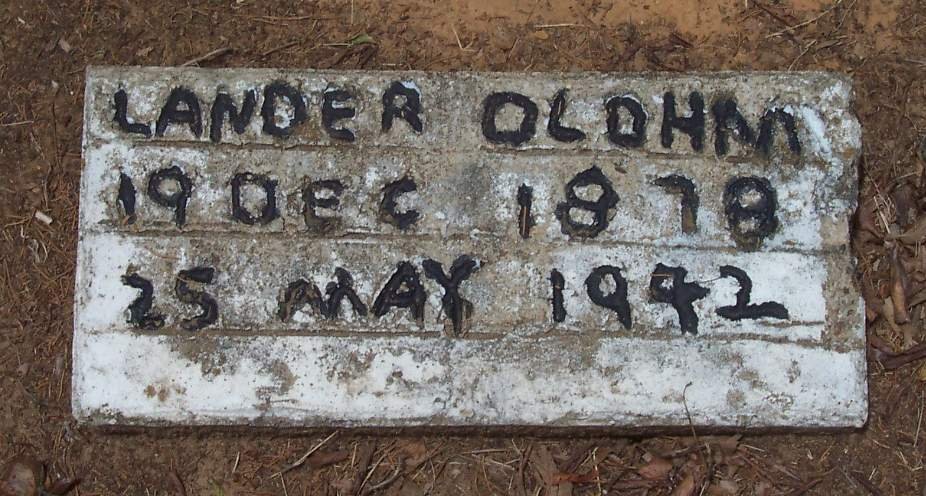 LANDER OLDHAM
19 DEC 1878
25 MAY 1942